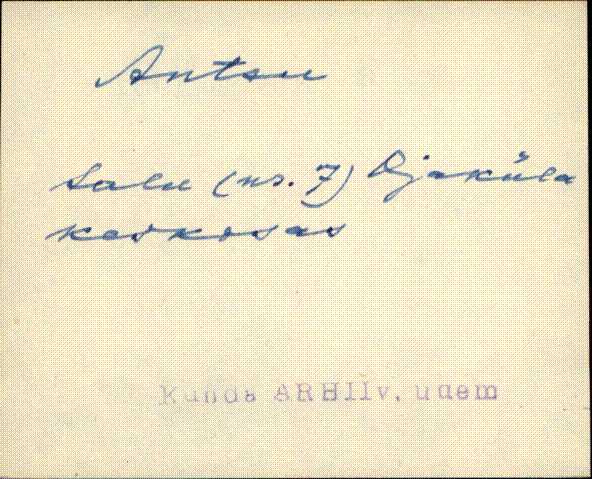 Antsu
talu (nr. 7) Ojaküla
keskosas
Kunda ARHIIv, uuem